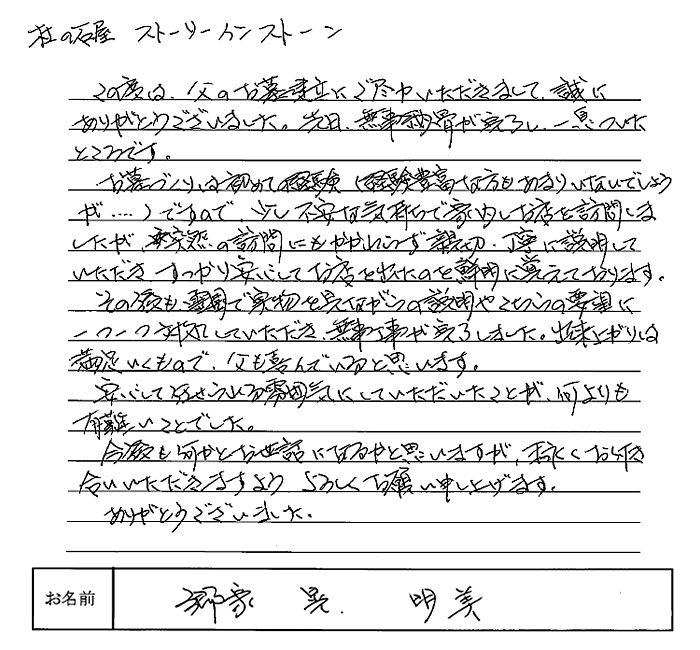 杜の石屋 ストーリーインストーン
この度は、父のお墓建立にご尽力いただきまして、誠に
ありがとうございました。先日、無事納骨が完了し、一息ついた
ところです。
お墓づくりは初めての経験（経験豊富な方もあまりいないでしょう
が‥‥）ですので、少し不安な気持ちで家内とお店を訪問しま
したが、突然の訪問にもかかわらず親切、丁寧に説明して
いただき すっかり安心してお店を出たのを鮮明に覚えております。
その後も、霊園で実物を見ながらの説明やこちらの要望に
一つ一つ対応していただき、無事工事が完了しました。出来上がりは
満足いくもので、父も喜んでいると思います。
安心して任せられる雰囲気にしていただいたことが、何よりも
有難いことでした。
今後も何かとお世話になるかと思いますが、末永くお付き
合いいただきますよう よろしくお願い申し上げます。
ありがとうございました。
お名前 郷家 晃. 明美